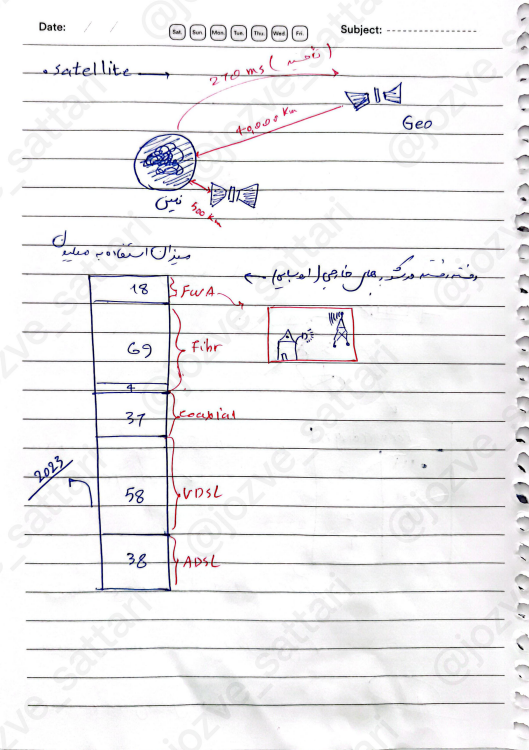 Date: / /
Sat. Sun. Mon. Tue. Thu. Wed. Fri.
Subject:
satellite →
270 ms (تاخیر)
40,000 Km
Geo
زمین
500 Km
میزان استفاده به میلیون
رفته رفته در گوشی های خارجی
18 FWA
69 Fibr
4
37 coaxial
2023
58 VDSL
38 ADSL
@jozve_sattari